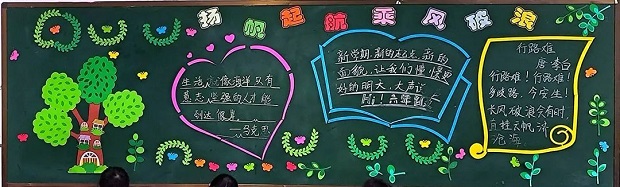 扬帆起航 乘风破浪
生活就像海洋只有
意志坚强的人才能
到达彼岸
——马克思
新学期,新的起点,新的
面貌,让我们慢慢更
好的明天,大声说
行路难
唐 李白
行路难!行路难!
多歧路,今安在!
长风破浪会有时,
直挂云帆济
沧海